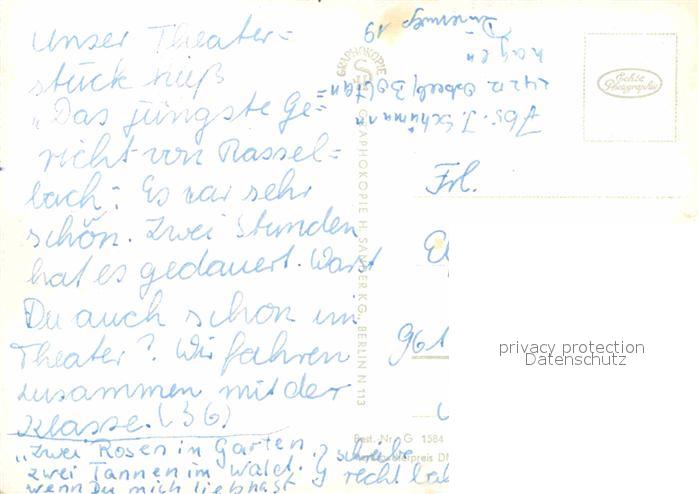 Unser Theater=
stück hieß
„Das jüngste Ge=
richt von Rassel=
bach". Es war sehr
schön. Zwei Stunden
hat es gedauert. Warst
Du auch schon im
Theater? Wir fahren
zusammen mit der
Klasse. (36)
„Zwei Rosen in Garten
zwei Tannen im Wald.
wenn Du mich lieb hast
schreibe
recht bal
GRAPHOKOPIE
GRAPHOKOPIE H. SANDER K.G., BERLIN N 113
Best. Nr. G 1584
Abs. J. Schümann
hagen
19
Echte
Photographie
Frl.
El
961
privacy protection
Datenschutz